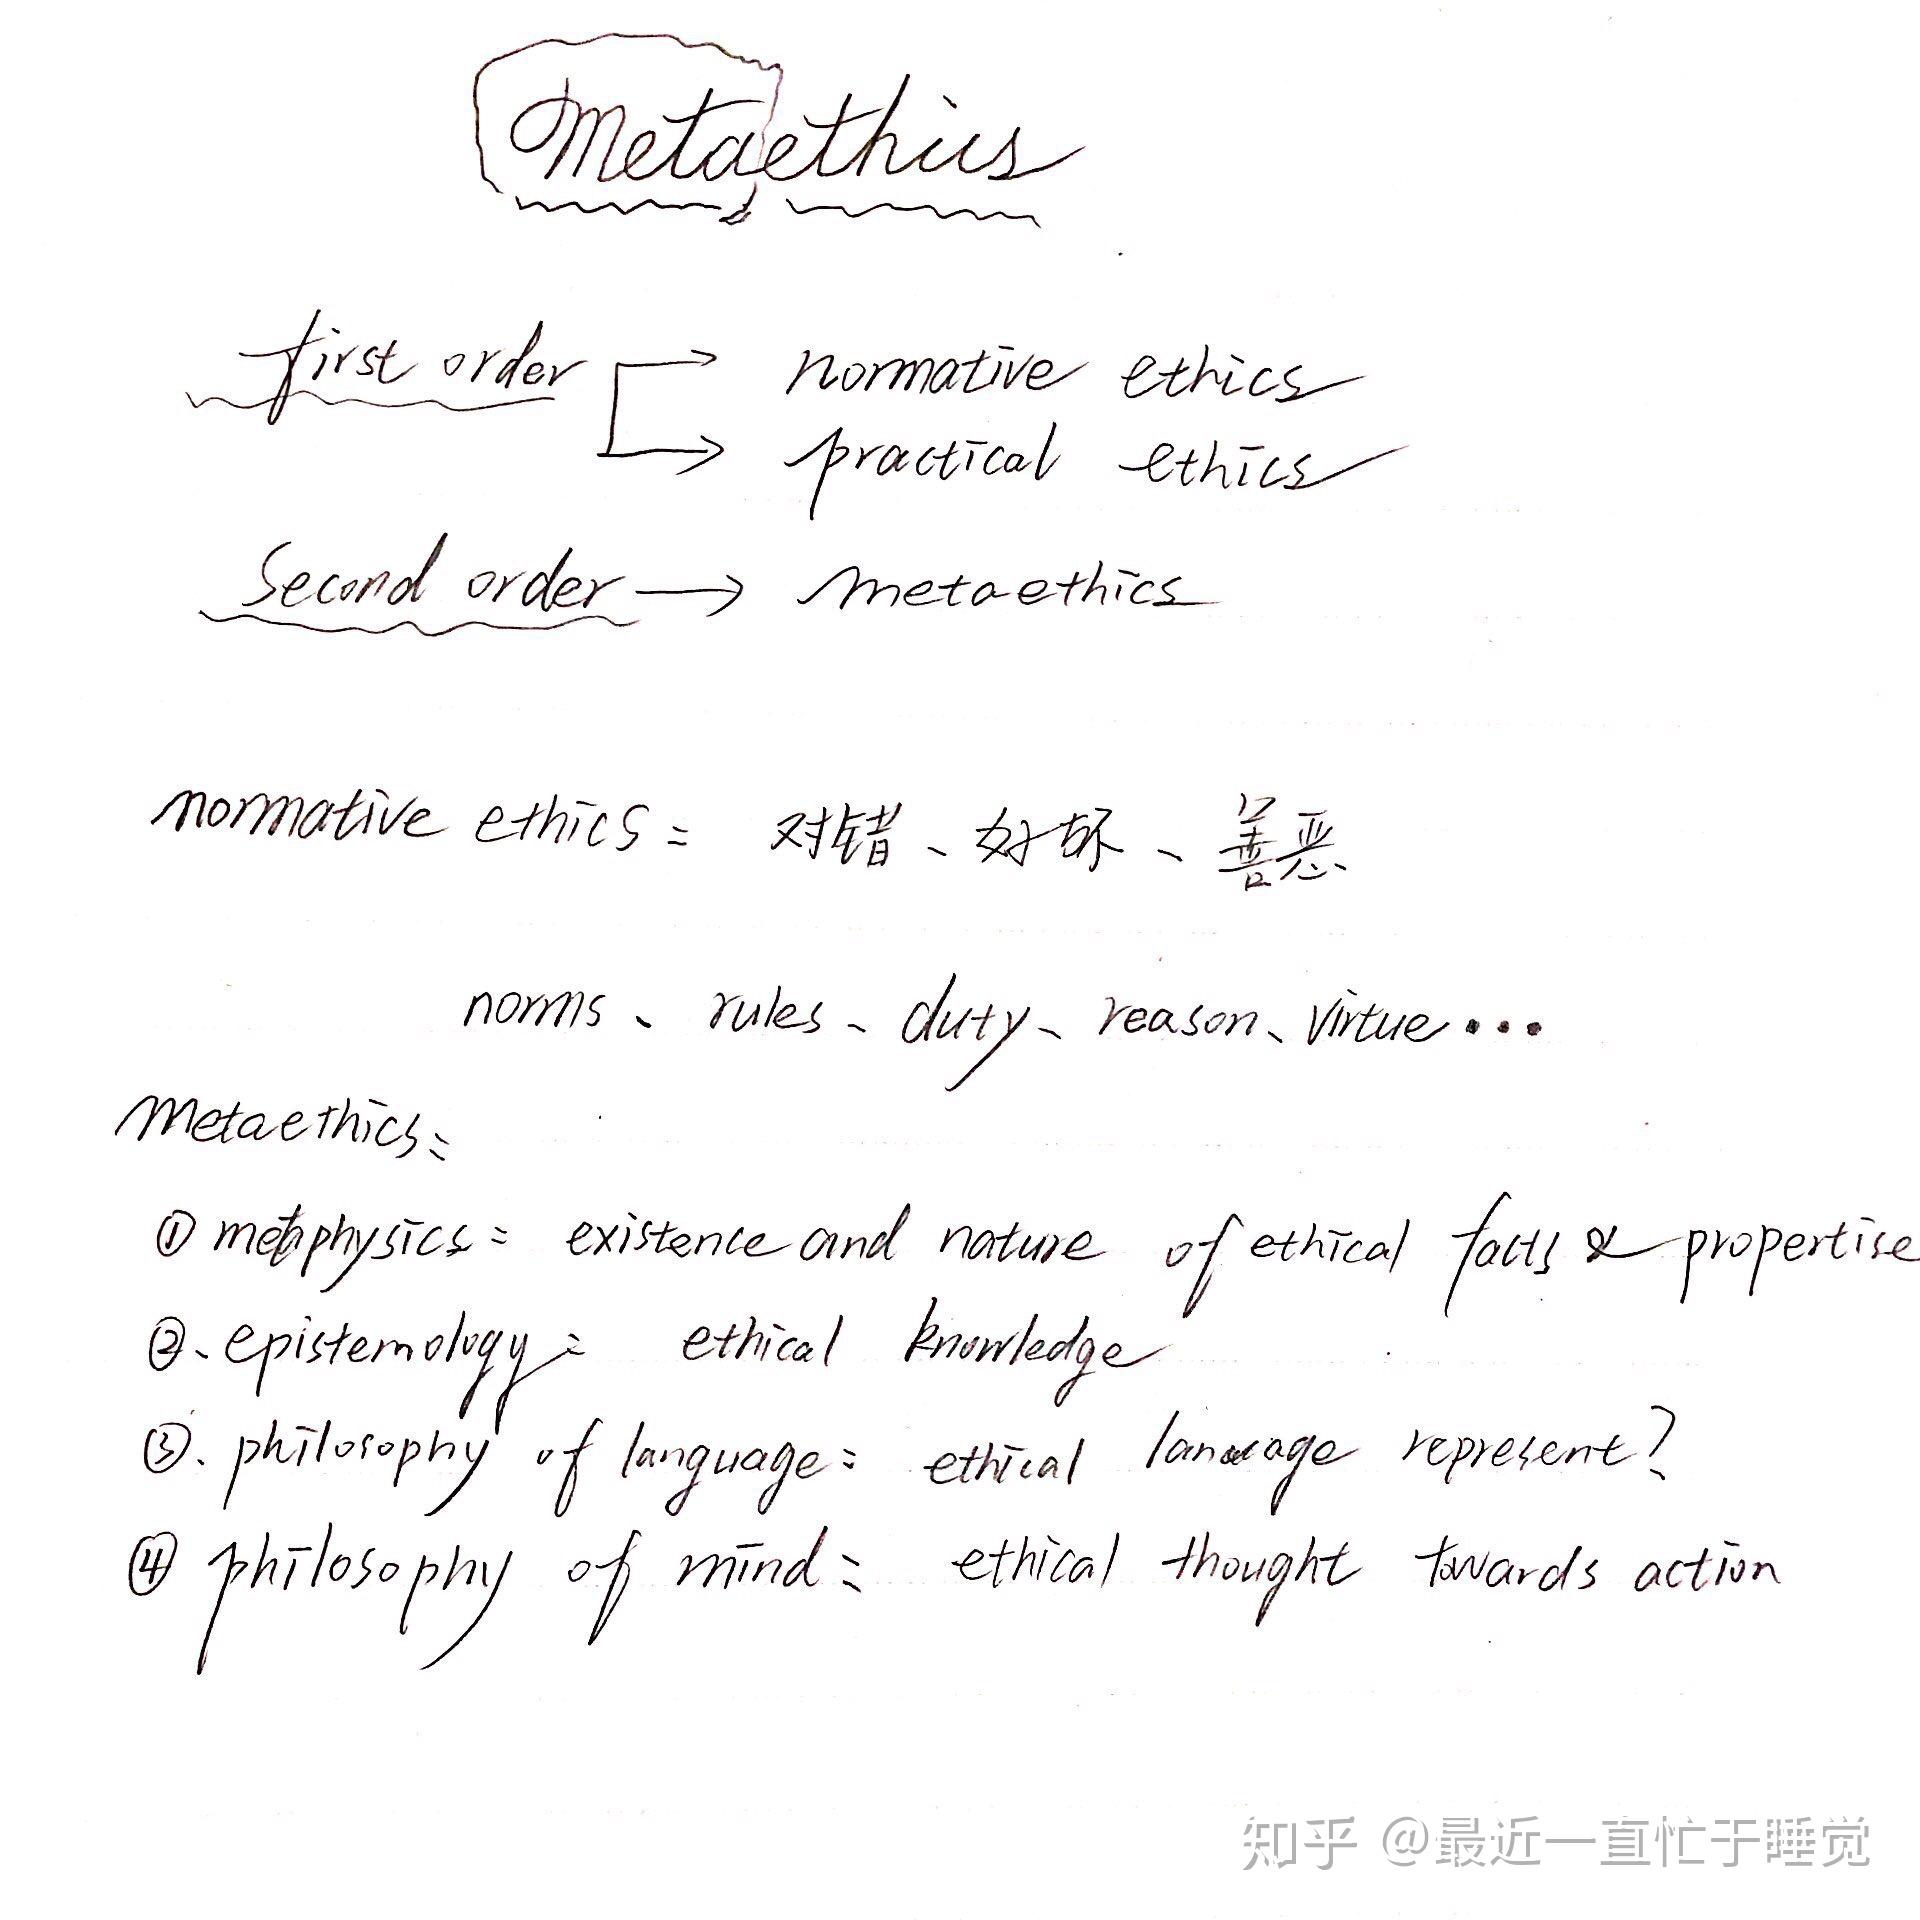 Metaethics
first order → normative ethics
→ practical ethics
Second order → metaethics
normative ethics: 对错、好坏、善恶
norms、rules、duty、reason、virtue...
Metaethics:
① metaphysics: existence and nature of ethical facts & propertise
②. epistemology: ethical knowledge
③. philosophy of language: ethical language represent?
④ philosophy of mind: ethical thought towards action
知乎 @最近一直忙于睡觉